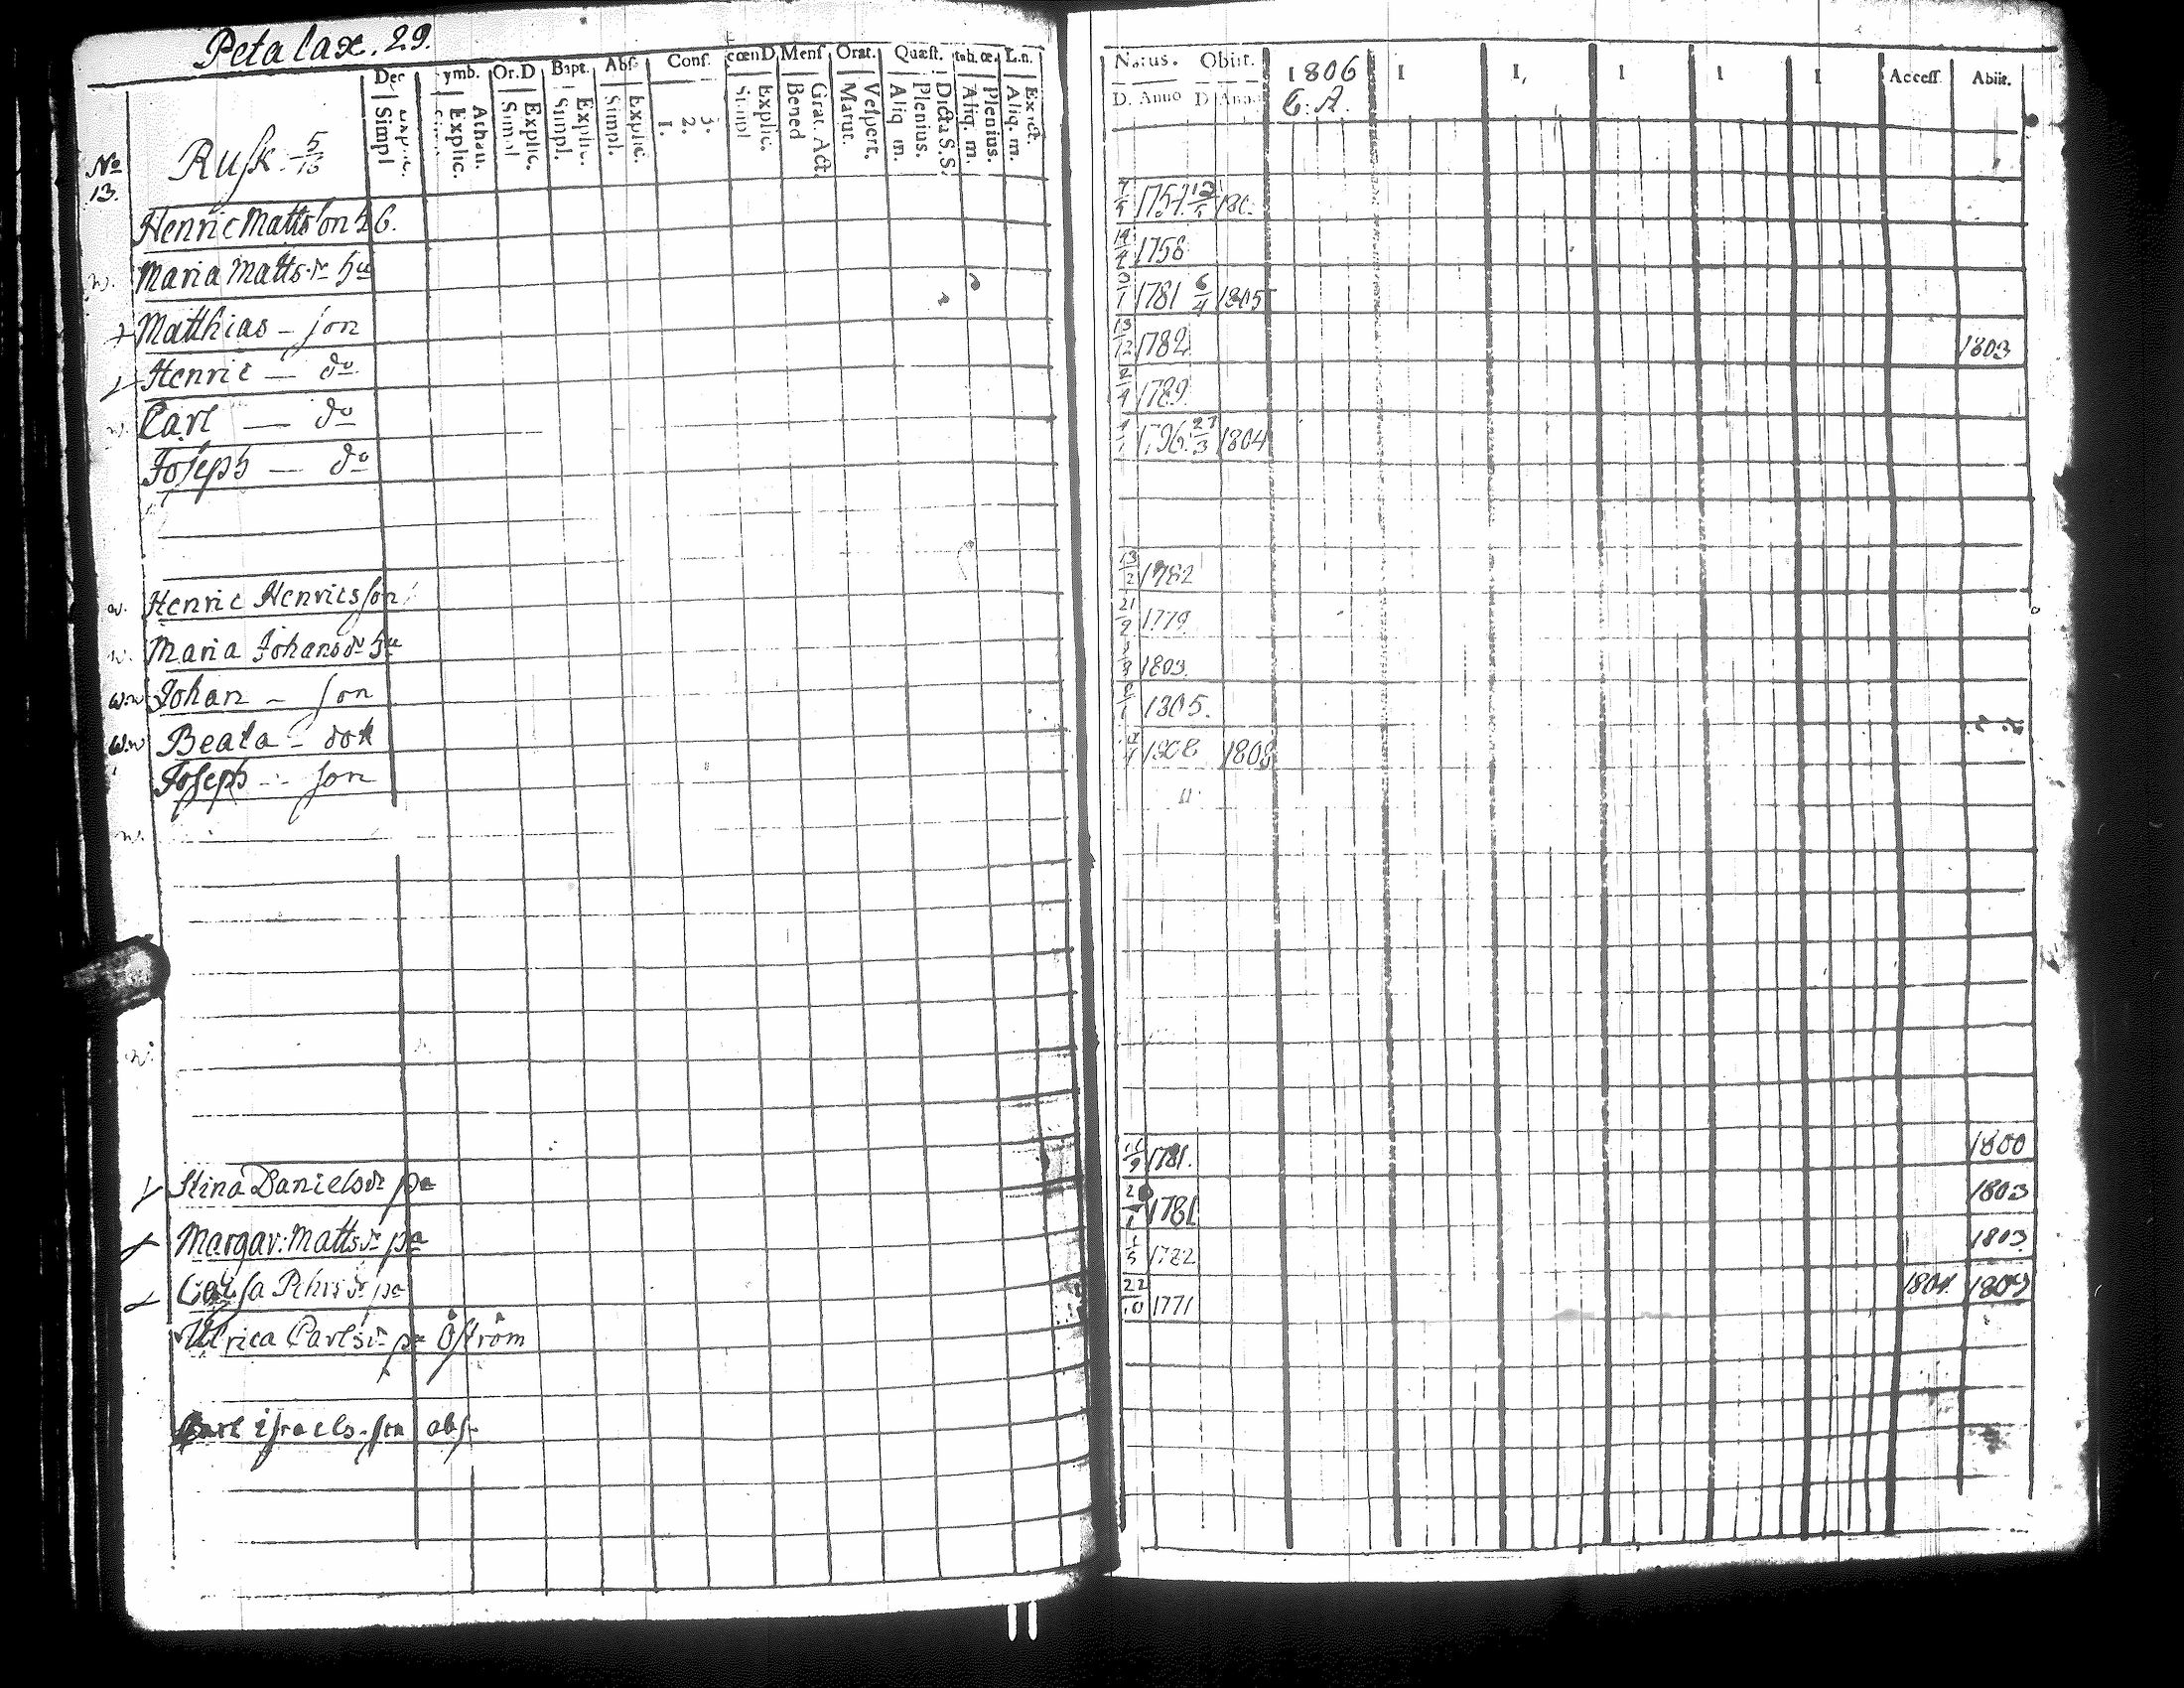 Petalax. 29.
Dec Symb. Or. D Bapt. Abs. Conf. cœn D Mens Orat. Quæst. tab. œ. L.n.
Simpl Explic. Explic. Athan. Simpl Explic. Simpl. Explic. Simpl. Explic. 1. 2. 3. Simpl Explic. Bened Grat. Act. Matut. Vespert. Aliq. m. Plenius. Dicta S. S. Aliq. m. Plenius. Aliq. m. Exact.
No 13. Rusk 5/13
Henric Mattsson
w. Maria Mattsdr hu
Matthias - son
Henric - do
Carl - do
Joseph - do
w. Henric Henricsson
w. Maria Johansdr hu
w.w Johan - son
w.w Beata - dok
Joseph - son
w.
Stina Danielsdr pa
Margar: Mattsdr pa
Cajsa pa
Ulrica Carlsdr pa Öström
Carl Israels son abs.
Natus. Obiit. 1806 I I, I I I Access. Abiit.
D. Anno D Ann. C. A.
1758
1781 6/4 1805
13/12 1782 1803
1789
1796. 27/3 1804
1782
21/2 1779
1803.
1805.
1808 1808
1781. 1800
1781 1803
1/5 1782 1803
22/10 1771 1804. 1809